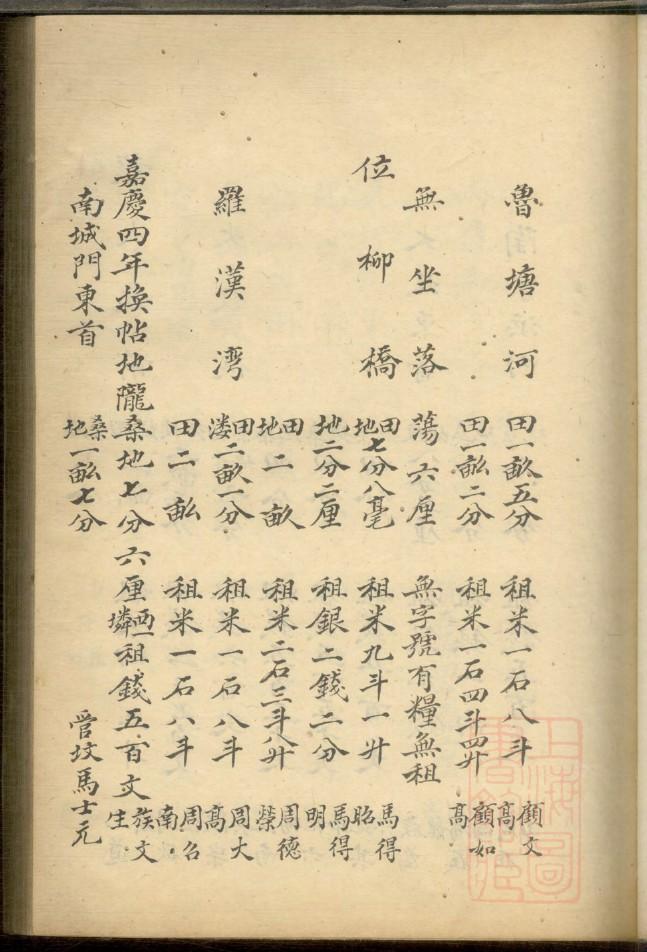 魯陶塘河 田一畝五分 租米一石八斗 顧文高
田一畝二分 租米一石四斗四升 顧如高
無坐落 蕩六厘 無字號有糧無租
位柳橋 田地七分八毫 租米九斗一升 馬得昭
地二分二厘 租銀二錢二分 馬得明
田地二畝 租米二石三斗八升 周德榮
羅漢灣 田漊二畝一分 租米一石八斗 周大高
田二畝 租米一石八斗 周召南
嘉慶四年換帖地隴桑地七分六厘西一墳租錢五百文 族文生
南城門東首 桑地一畝七分 管坟馬士元
上海圖書館藏